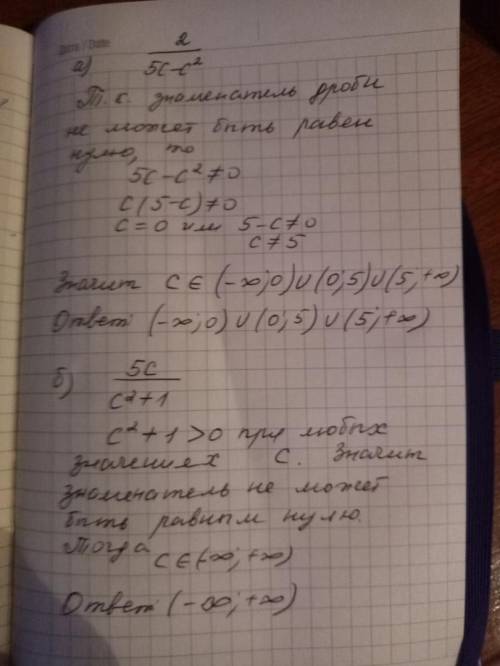 Дата / Date
а) 2/(5c-c²)
Т. к. знаменатель дроби
не может быть равен
нулю, то
5c-c²≠0
c(5-c)≠0
c=0 или 5-c≠0
c≠5
Значит c∈(-∞;0)∪(0;5)∪(5;+∞)
Ответ (-∞;0)∪(0;5)∪(5;+∞)
б) 5c/(c²+1)
c²+1>0 при любых
значениях c. Значит
знаменатель не может
быть равным нулю.
Тогда
c∈(-∞;+∞)
Ответ (-∞;+∞)